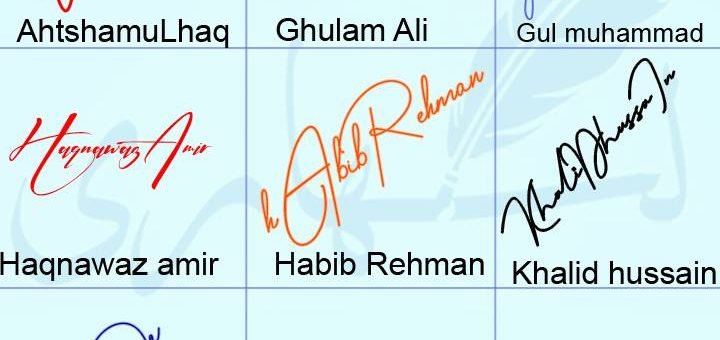 AhtshamuLhaq
Ghulam Ali
Gul muhammad
Haqnawaz Amir
hAbib Rehman
KhaliDhussaIn
Haqnawaz amir
Habib Rehman
Khalid hussain